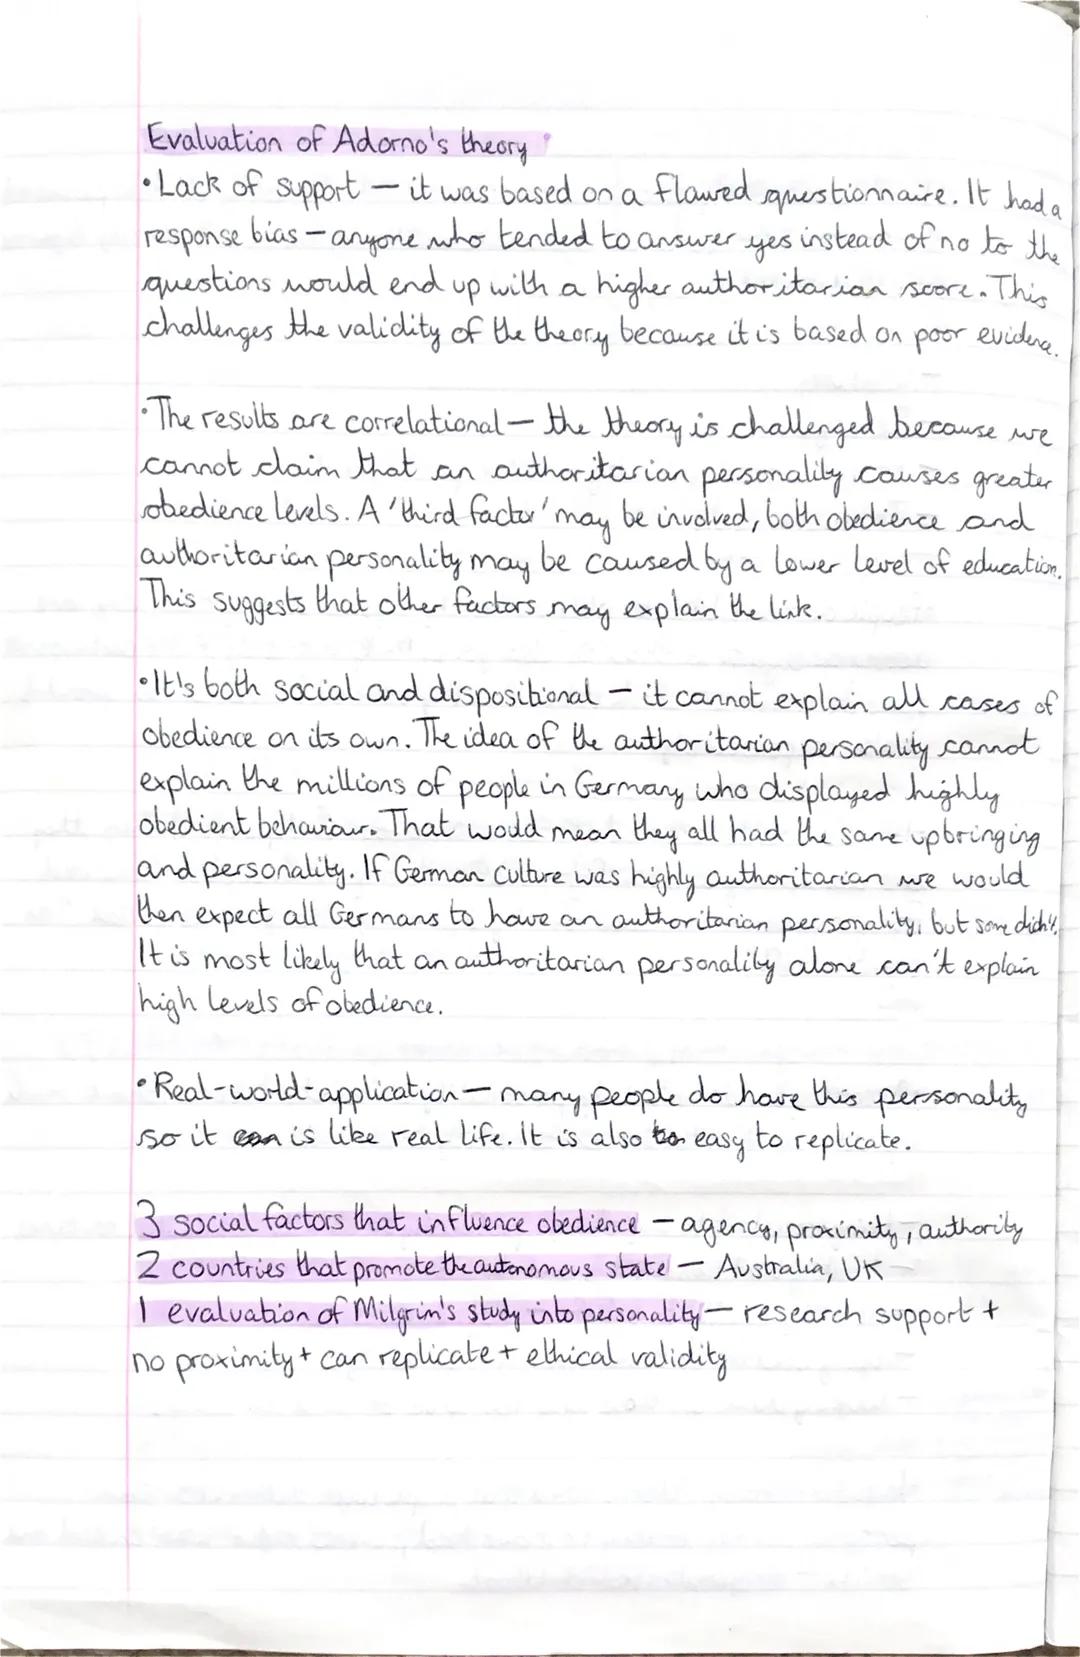 Evaluation of Adorno's theory
• Lack of support — it was based on a flawed questionnaire. It had a
response bias - anyone who tended to answer yes instead of no to the
questions would end up with a higher authoritarian score. This
challenges the validity of the theory because it is based on poor evidence.
• The results are correlational - the theory is challenged because we
cannot claim that an authoritarian personality causes greater
obedience levels. A 'third factor' may be involved, both obedience and
authoritarian personality may be caused by a lower level of education.
This suggests that other factors may explain the link.
• It's both social and dispositional - it cannot explain all cases of
obedience on its own. The idea of the authoritarian personality cannot
explain the millions of people in Germany who displayed highly
obedient behaviour. That would mean they all had the same upbringing
and personality. If German culture was highly authoritarian we would
then expect all Germans to have an authoritarian personality, but some didn't.
It is most likely that an authoritarian personality alone can't explain
high levels of obedience.
• Real-world-application - many people do have this personality
so it is like real life. It is also easy to replicate.
3 social factors that influence obedience - agency, proximity, authority
2 countries that promote the autonomous state - Australia, UK
1 evaluation of Milgrim's study into personality - research support +
no proximity + can replicate + ethical validity